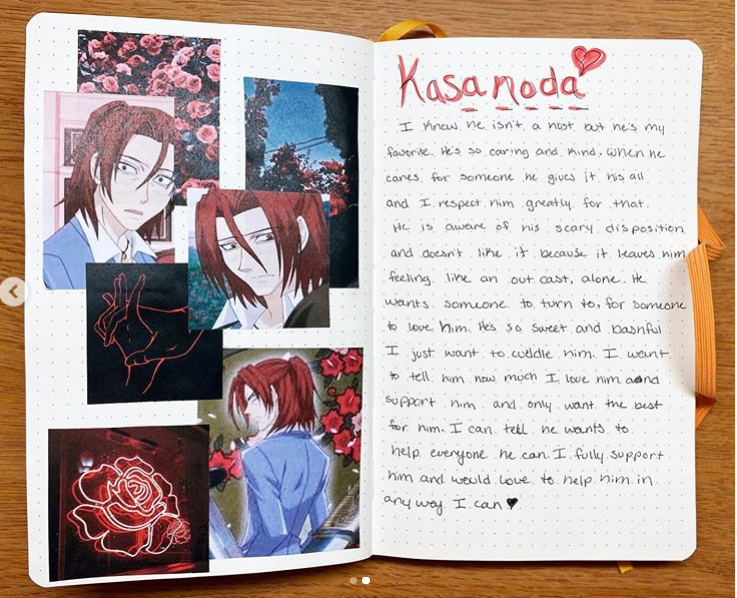 Kasanoda
I know he isn't a host but he's my
favorite. He's so caring and kind. When he
cares for someone he gives it his all
and I respect him greatly for that.
He is aware of his scary disposition
and doesn't like it because it leaves him
feeling like an out cast, alone. He
wants someone to turn to, for someone
to love him. He's so sweet and bashful
I just want to cuddle him. I want
to tell him how much I love him and
support him and only want the best
for him. I can tell he wants to
help everyone he can. I fully support
him and would love to help him in
any way I can